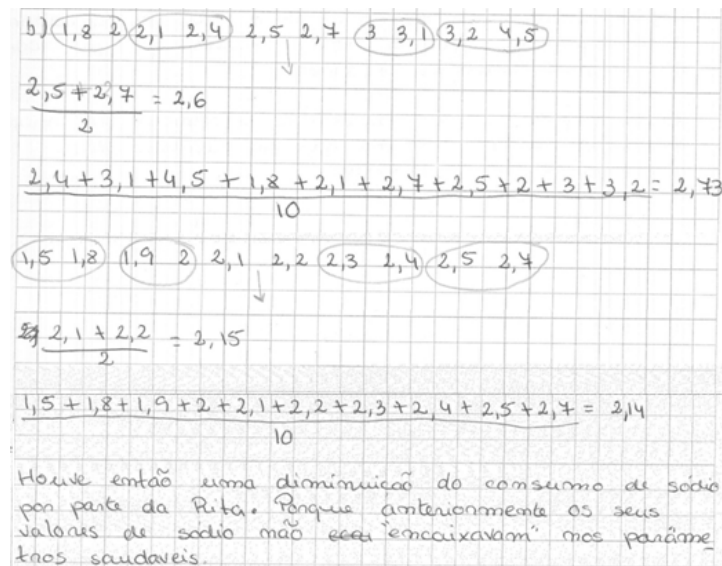 b) 1,8 2 2,1 2,4 2,5 2,7 3 3,1 3,2 4,5
2,5 + 2,7 = 2,6
2
2,4 + 3,1 + 4,5 + 1,8 + 2,1 + 2,7 + 2,5 + 2 + 3 + 3,2 = 2,73
10
1,5 1,8 1,9 2 2,1 2,2 2,3 2,4 2,5 2,7
2,1 + 2,2 = 2,15
2
1,5 + 1,8 + 1,9 + 2 + 2,1 + 2,2 + 2,3 + 2,4 + 2,5 + 2,7 = 2,14
10
Houve então uma diminuicão do consumo de sódio
por parte da Rita. Porque anteriormente os seus
valores de sódio não "encaixavam" nos parâme_
tros saudaveis.